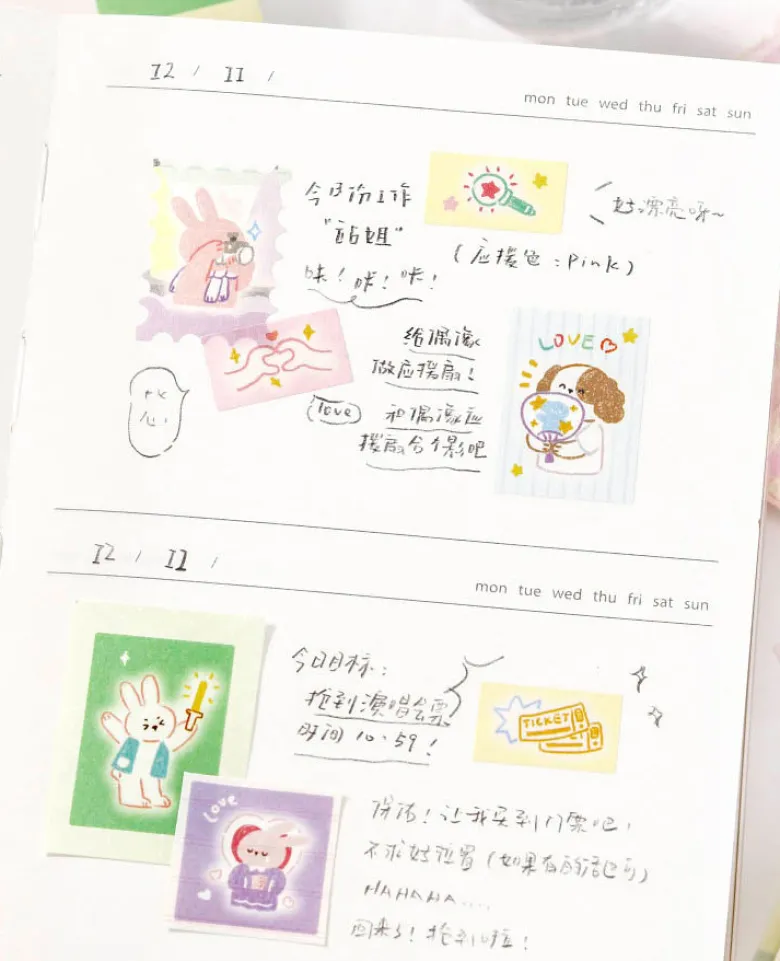 12 / 11 /
mon tue wed thu fri sat sun
今日份工作
"站姐"
咔！咔！咔！
好漂亮呀~
(应援色：Pink)
给偶像
做应援扇！
love 和偶像应
援扇合个影吧
LOVE
比
心
12 / 11 /
mon tue wed thu fri sat sun
今日目标：
抢到演唱会票
时间10:59！
TICKET
Love
保佑！让我买到门票吧，
不求好位置(如果有的话也可)
HAHAHA....
回来了！抢到啦！